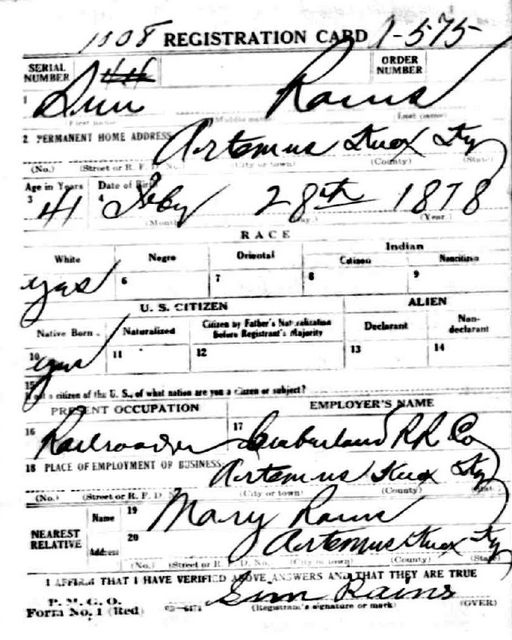 1508 REGISTRATION CARD 1-575
SERIAL NUMBER ORDER NUMBER
1 Sim Rains
First name Middle name Last name
2 PERMANENT HOME ADDRESS Artemus Knox Ky
(No.) (Street or R. F. D. No.) (City or town) (County) (State)
Age in Years Date of Birth
3 41 4 Feby 28th 1878
(Month) (Day.) (Year.)
RACE
White Negro Oriental Indian
Citizen Noncitizen
yes 6 7 8 9
U. S. CITIZEN ALIEN
Native Born Naturalized Citizen by Father's Naturalization Before Registrant's Majority Declarant Non-declarant
10 yes 11 12 13 14
15
If not a citizen of the U. S., of what nation are you a citizen or subject?
PRESENT OCCUPATION EMPLOYER'S NAME
16 Railroader 17 Cumberland R R Co
18 PLACE OF EMPLOYMENT OF BUSINESS Artemus Knox Ky
(No.) (Street or R. F. D. (City or town) (County) State)
NEAREST RELATIVE
Name 19 Mary Rains
Address 20 Artemus Knox Ky
(No.) (Street or R. F. D. No.) (City or town) (County) (State)
I AFFIRM THAT I HAVE VERIFIED ABOVE ANSWERS AND THAT THEY ARE TRUE
P. M. G. O.
Form No. 1 (Red) Sim Rains
(Registrant's signature or mark) (OVER)